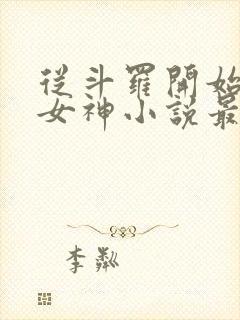 從斗羅開始
女神小說最
李粼